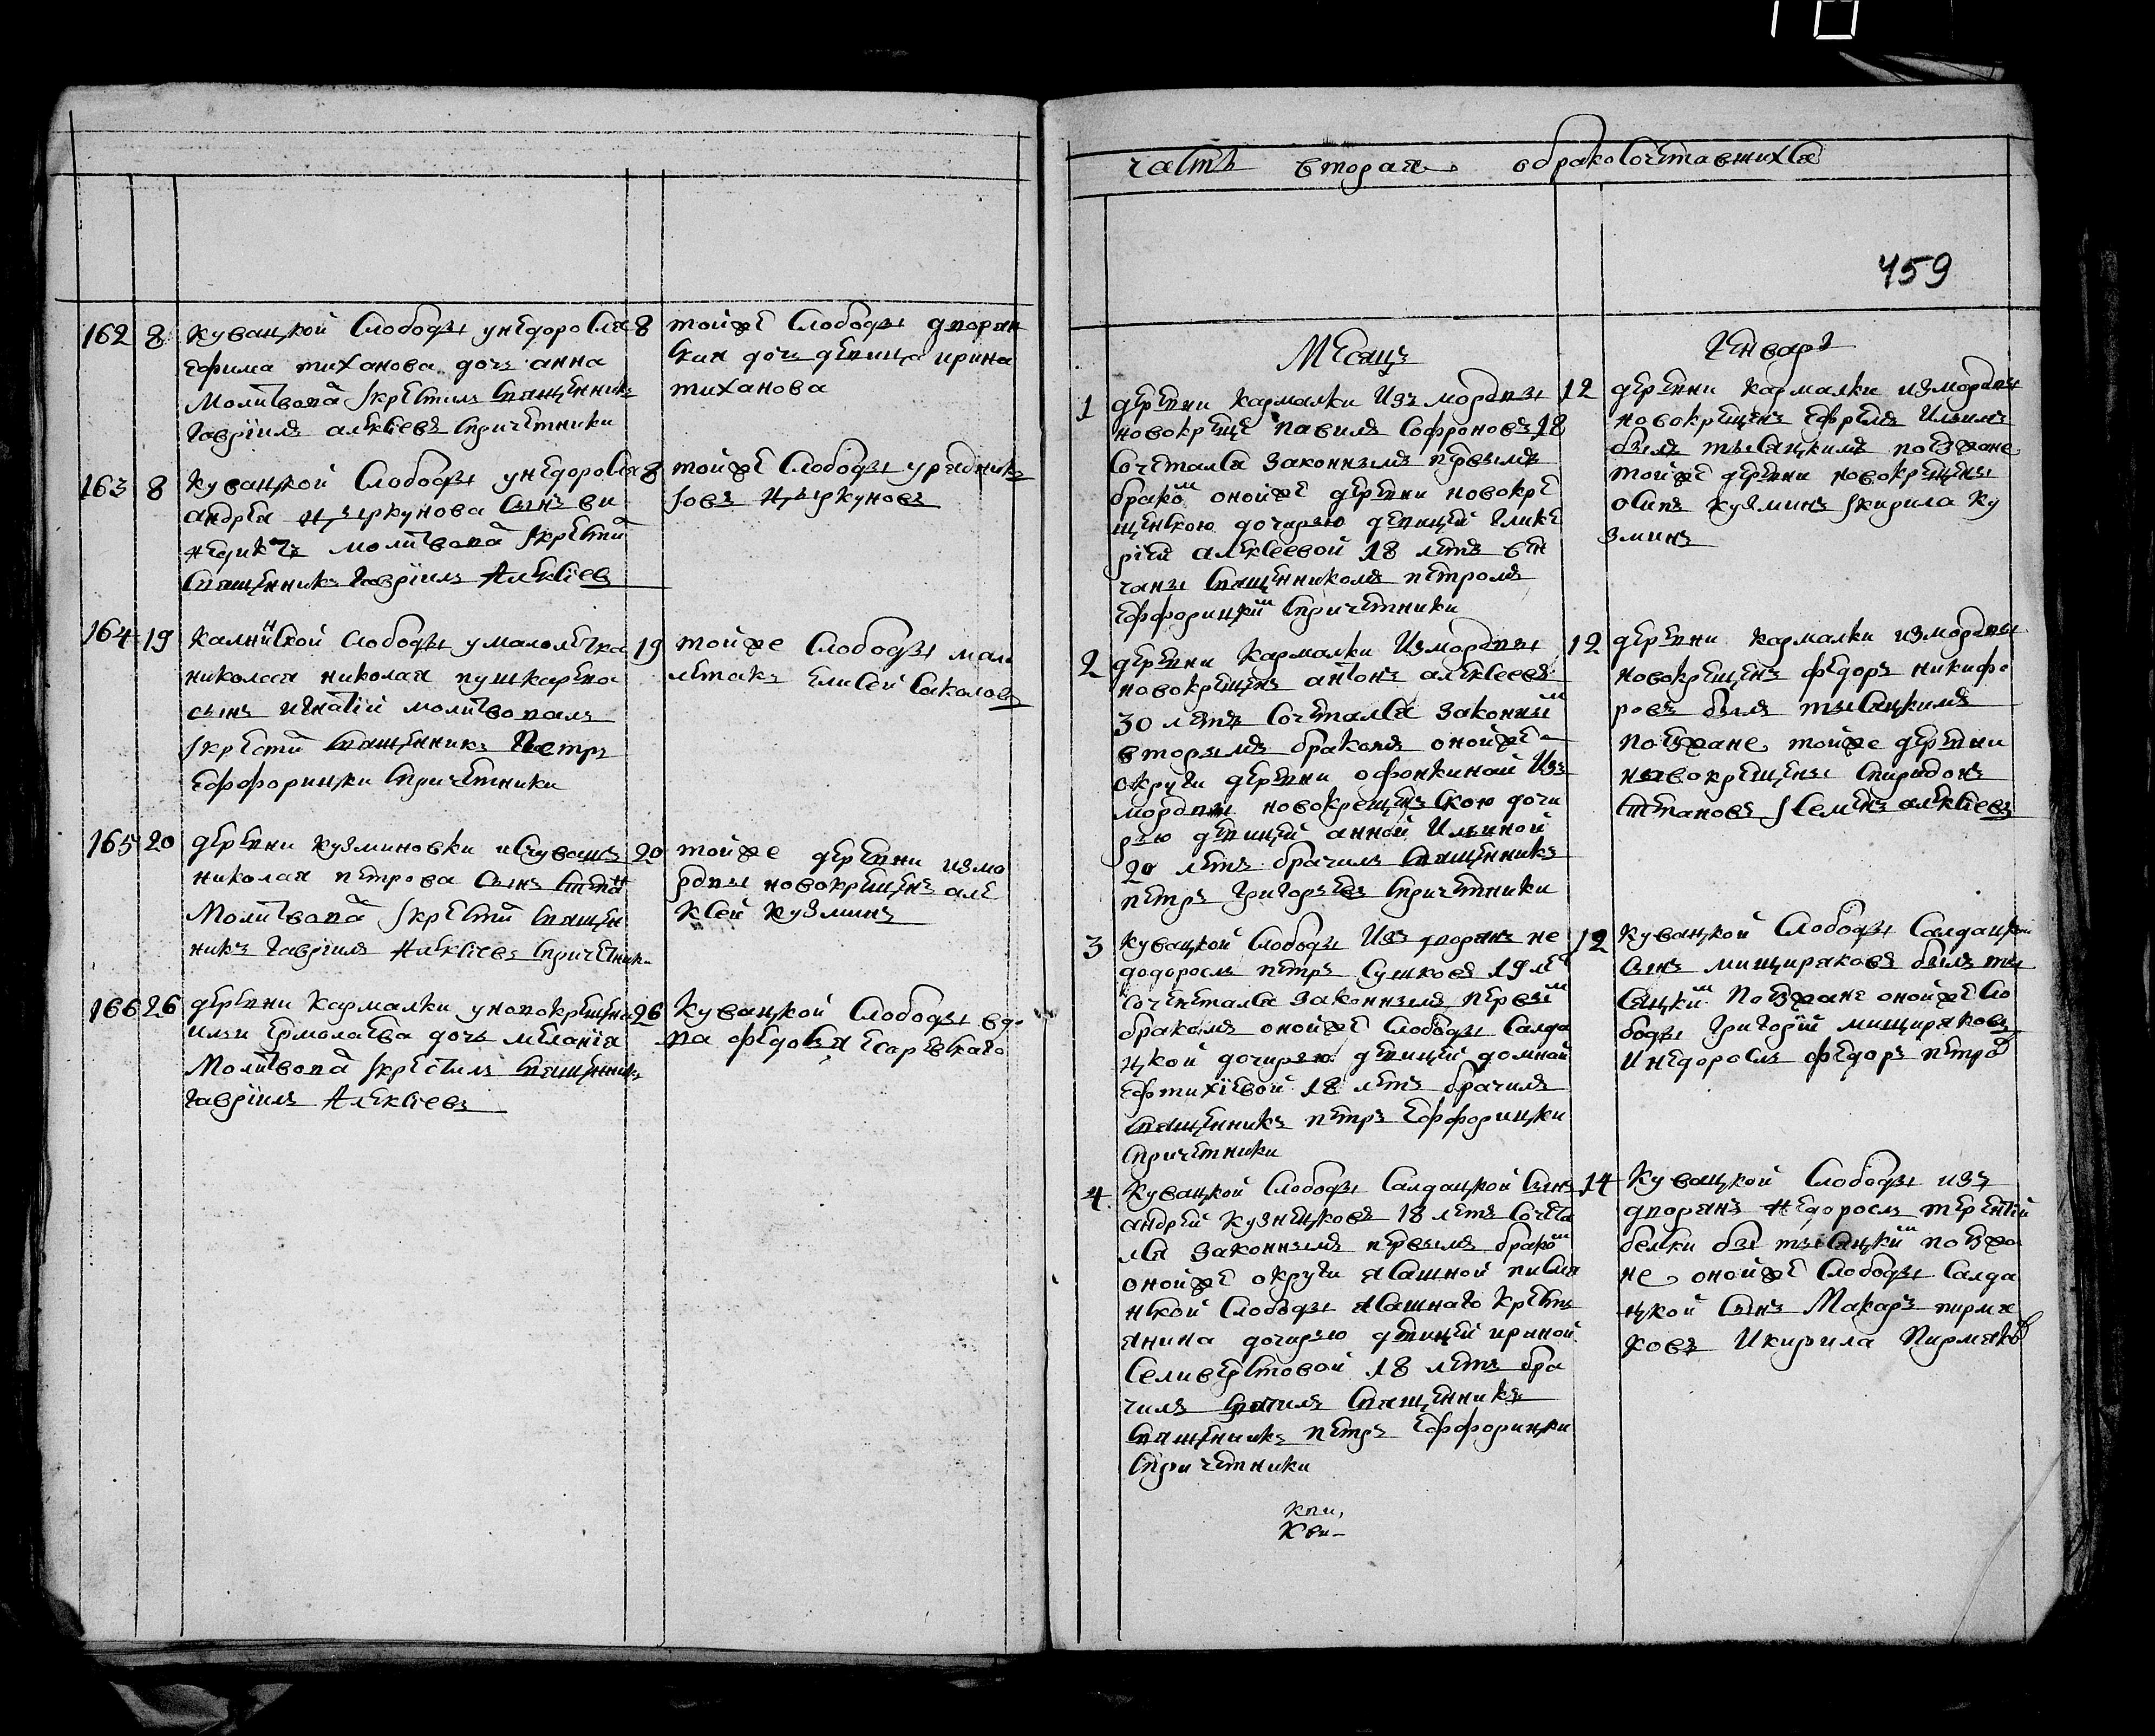 162 8 Кувацкой Слободы унедоросля
Ефима тиханова дочь анна
Молитвопа Iкрестилъ Спященникъ
Гаврiилъ алексiевъ Спричетники
8 тойже Слободы дпорян
ская дочь депица ирина
тиханова
163 8 Кувацкой Слободы унедоросля
андрея цыркунова Сынъ ви
недиктъ молитвопа Iкрестил
Спященникъ Гаврiилъ Алексiев
8 тойже Слободы урядникъ
Iовъ цыркуновъ
164 19 Слободы умалолетка
николая николая пушкарепа
сынъ игнатiй молитвопалъ
Iкрестил Спященникъ Петръ
Ефоринцки Спричетники
19 тойже Слободы мало
летакъ Елисей Саколовъ
165 20 дерепни кузминовки исчувашъ
николая петрова Сынъ Степан
Молитвопа Iкрестил Спящен
никъ Гаврiилъ Алексiевъ Спричетник
20 тойже дерепни измо
рдпы новокрещенъ але
ксей кузминъ
166 26 дерепни Кармалки унопокрещена
ильи Ермолаева дочь меланiя
Молитвопа Iкрестилъ Спященникъ
Гаврiилъ Алексiевъ
26 Кувацкой Слободы вдо
па
часть вторая обракосочетавшихся
459
Месяцъ Генварь
1 дерепни кармалки Изъ мордпы
новокреще павилъ Софроновъ 18
Сочетался законнымъ первымъ
браком онойже дерепни новокре
щенскою дочирью депицей глике
рiей алексеевой 18 летъ вен
чаны Спященникомъ петромъ
Ефоринцким Спричетники
12 дерепни кармалки измордпы
новокрещенъ Ефремъ Ильинъ
былъ тысяцкимъ поезжане
тойже дерепни новокрещены
Осипъ кузминъ Iкирила ку
зминъ
2 дерепни кармалки Измордпы
новокрещенъ антонъ алексеевъ
30 летъ Сочетался законным
вторымъ бракомъ онойже
округи дерепни офонкиной Изъ
мордпы новокрещенъскою дочи
рью депицей анной Ильиной
20 летъ брачилъ Спященникъ
петръ григорьевъ Спричетники
12 дерепни кармалки измордпы
новокрещенъ федоръ никифо
ровъ былъ тысяцкимъ
поезжане тойже дерепни
навокрещены Спиридонъ
Степановъ IСеменъ алексiевъ
3 кувацкой Слободы Изъ дпорянъ не
додоросль петръ Сушковъ 19 ле
Сочинетался законнымъ первым
бракомъ онойже Слободы Салда
цкой дочирью депицей домной
Ефтихiевой 18 летъ брачилъ
Спященникъ петръ Ефоринцки
Спричетники
12 кувацкой Слободы Салдацкой
Сынъ мищиряковъ былъ ты
сяцким Поезжане онойже Сло
боды Григорiй мищиряковъ
Инедоросль федоръ петров
4 кувацкой Слободы Салдацкой Сынъ
андрей кузнецковъ 18 летъ Сочета
лся законнымъ первымъ браком
онойже округи ясашной
Слободы ясашнаго крестья
янина дочирью депицей ириной
Селиверстовой 18 летъ бра
чилъ Спященникъ
Спященникъ петръ Ефоринцки
Спричетники
14 кувацкой Слободы изъ
дпорянъ недоросль терентiй
белки бы тысяцким поезжа
не онойже Слободы Салда
цкой Сынъ Макаръ пирмя
ковъ Икирила Пирмяков